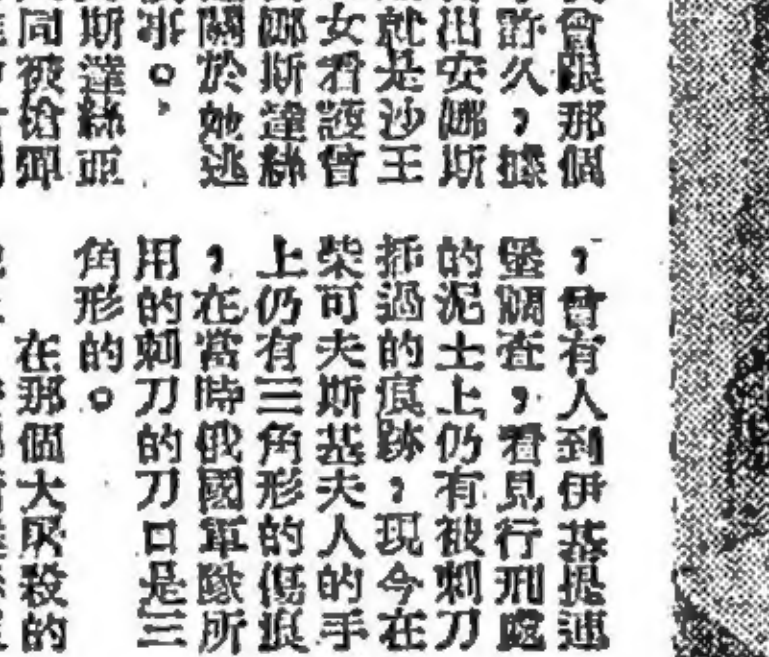 會跟那個
許久，據
出安娜斯
就是沙王
女看護曾
娜斯達絲
關於她逃
。
斯達絲亞
同被槍彈
，曾有人到伊基提連
堡調查，看見行刑處
的泥土上仍有被刺刀
插過的痕跡，現今在
柴可夫斯基夫人的手
上仍有三角形的傷痕
，在當時俄國軍隊所
用的刺刀的刀口是三
角形的。
在那個大屠殺的